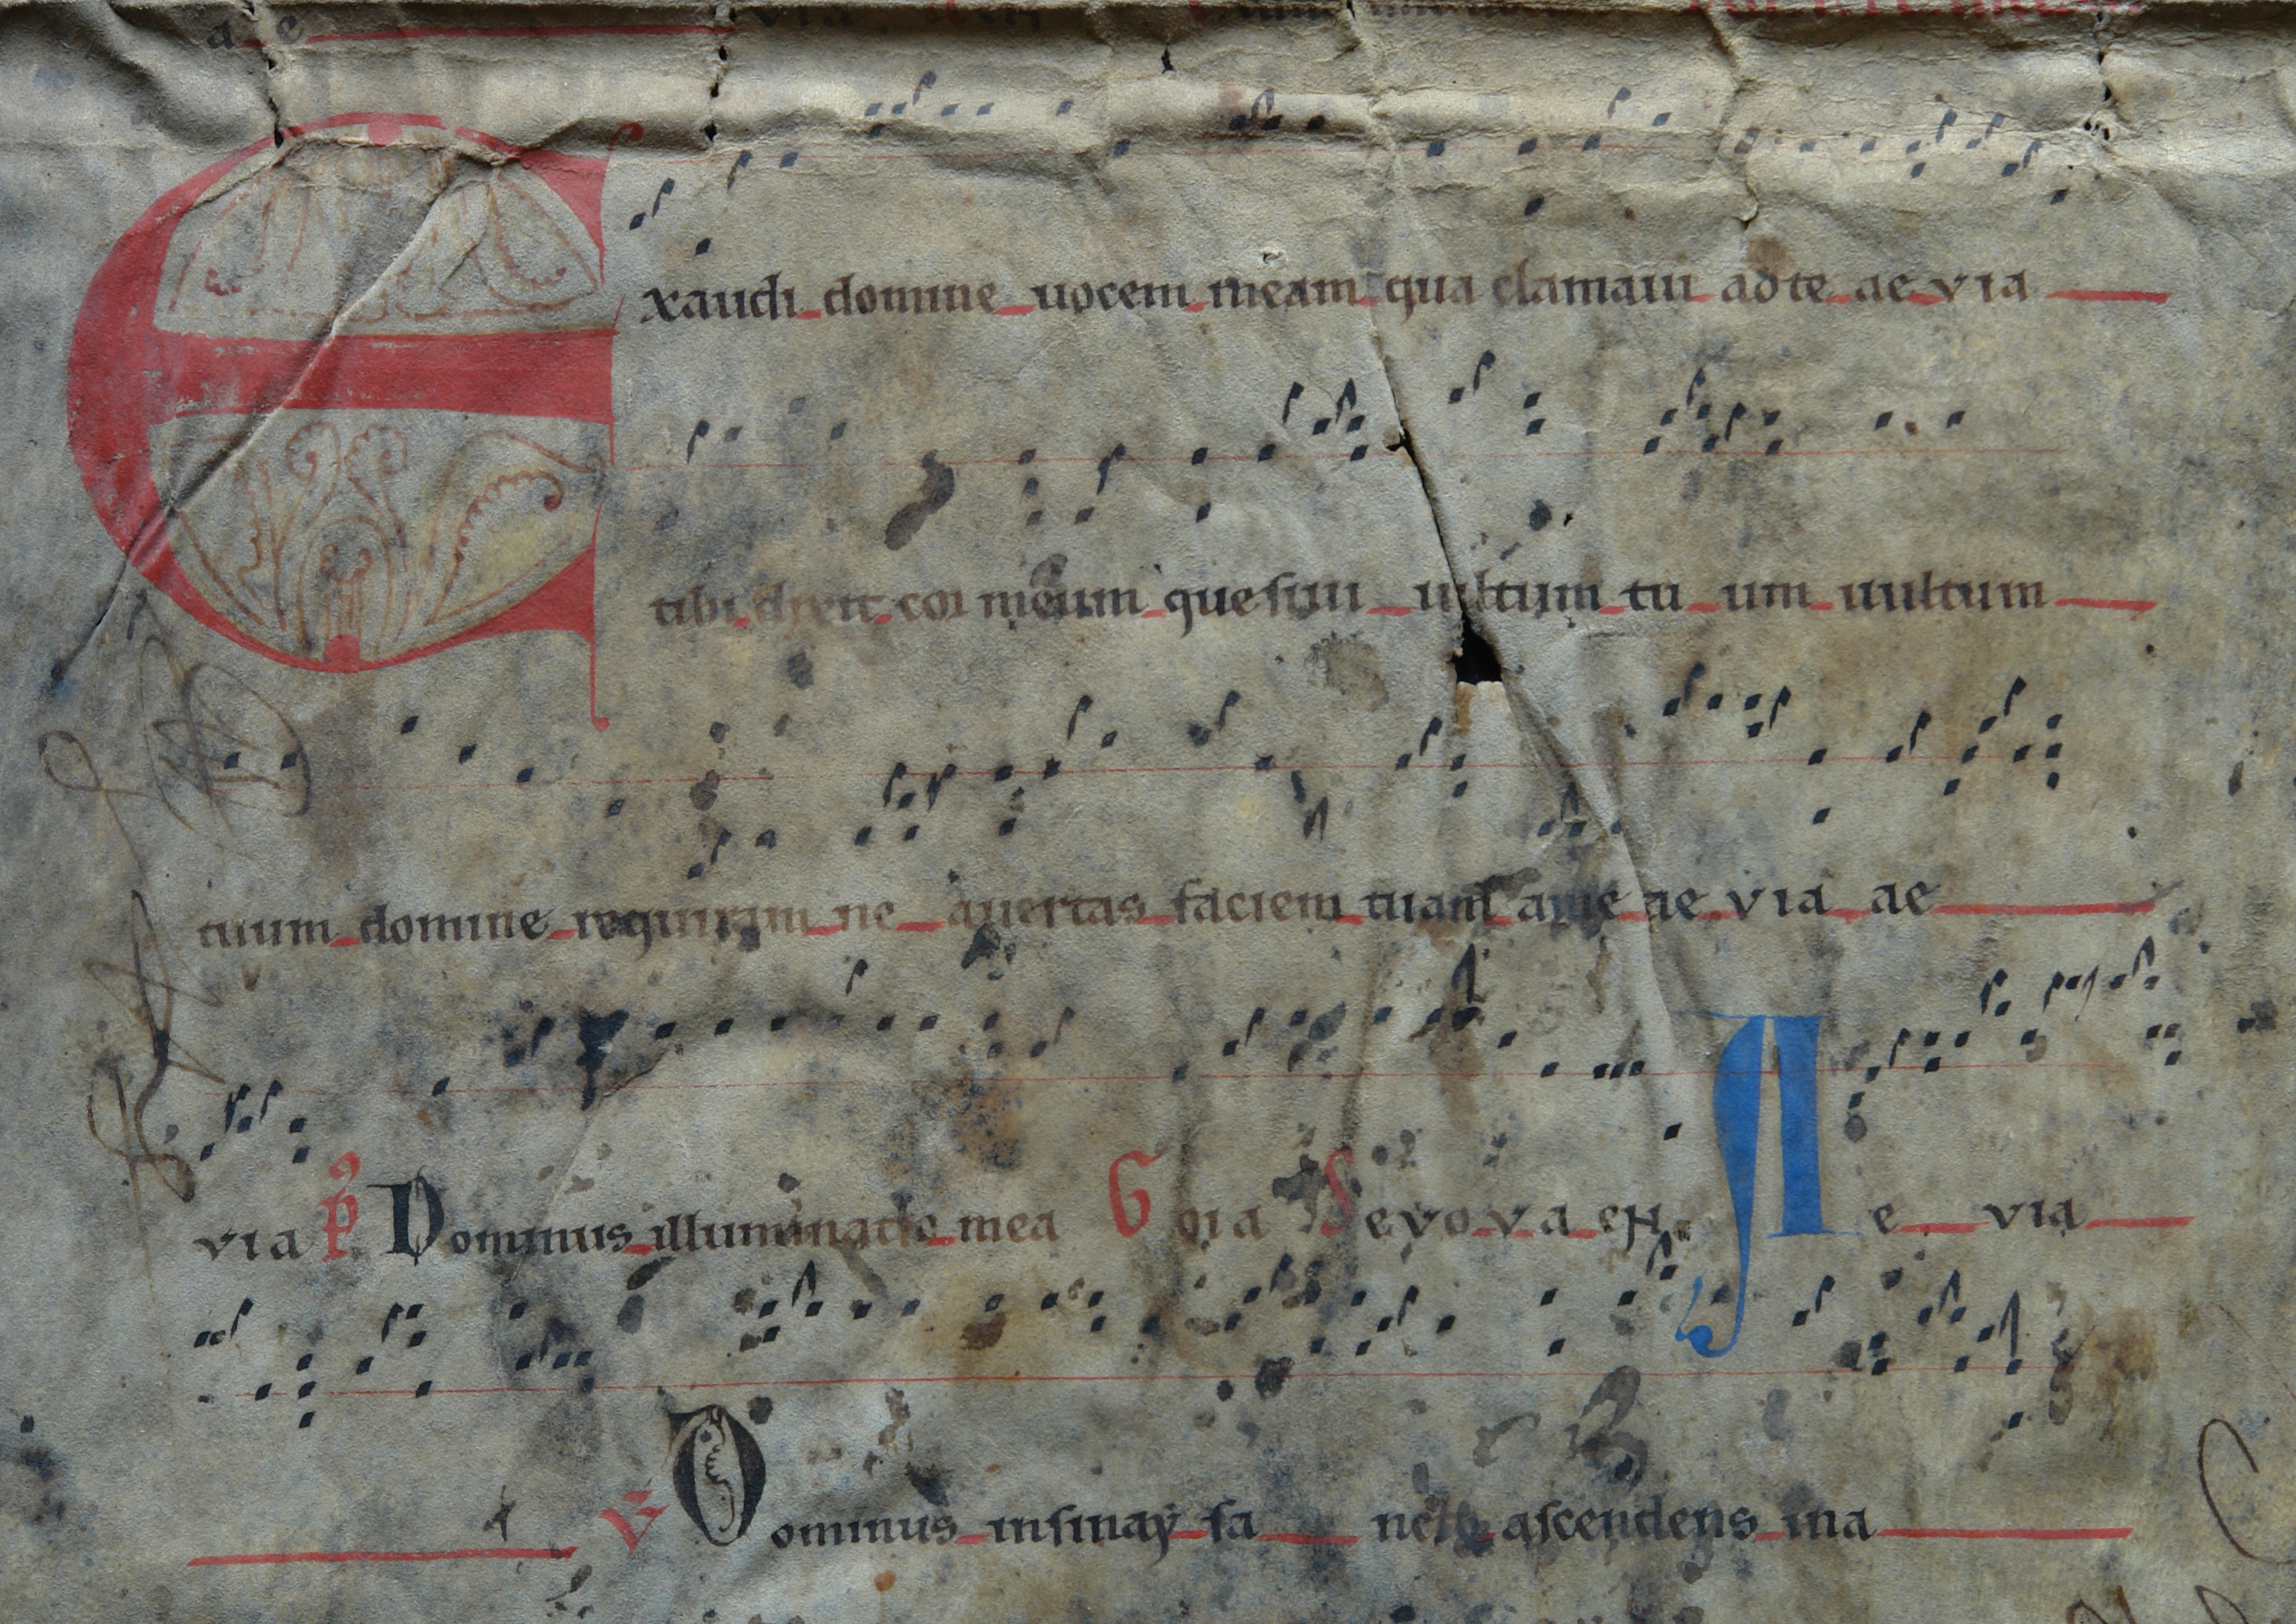 a e via
Exaudi domine uocem meam qua clamaui ad te ae via
tibi dixit cor meum quesiui uultum tu um uultum
tuum domine requiram ne auertas faciem tuam ame ae via ae
via p̃ Dominus illuminatio mea Gɫoɪa Sevovaen. Ae via
℣ Dominus insinay sa ncto ascendens ina